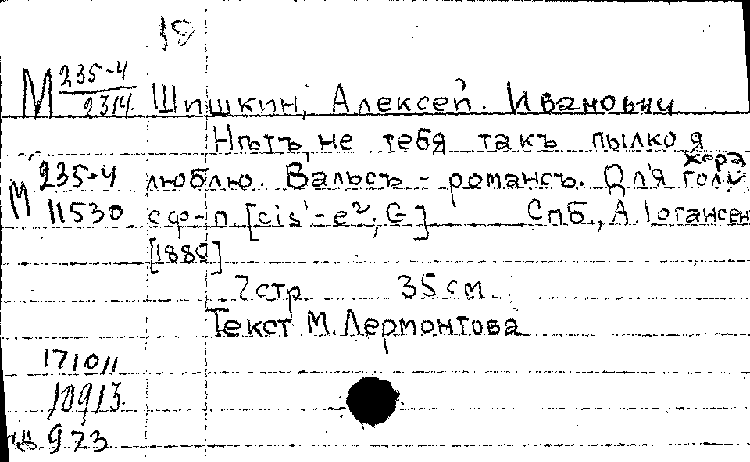 18
М 235-4
2314 Шишкин, Алексей Иванович
Нѣтъ, не тебя такъ пылко я
М 235-4 люблю. Вальсъ - романсъ. Для хора
11530 с ф-п. [cis'-e²; G] Спб., А. Іогансен
[188
7 стр. 35 см.
Текст М. Лермонтова
171011
10913
973